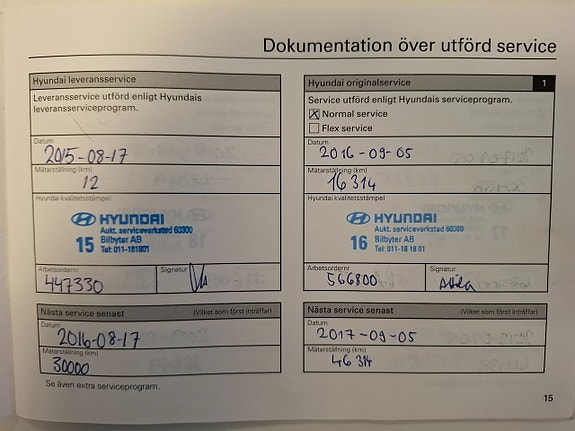 Dokumentation över utförd service
Hyundai leveransservice
Leveransservice utförd enligt Hyundais
leveransserviceprogram.
Datum
2015-08-17
Mätarställning (km)
12
Hyundai kvalitetsstämpel
HYUNDAI
Aukt. serviceverkstad 60300
15 Bilbyter AB
Tel: 011-181801
Arbetsordernr
447330
Signatur
Nästa service senast (Vilket som först inträffar)
Datum
2016-08-17
Mätarställning (km)
30000
Se även extra serviceprogram.
Hyundai originalservice 1
Service utförd enligt Hyundais serviceprogram.
Normal service
Flex service
Datum
2016-09-05
Mätarställning (km)
16314
Hyundai kvalitetsstämpel
HYUNDAI
Aukt. serviceverkstad 60300
16 Bilbyter AB
Tel: 011-18 18 01
Arbetsordernr
566800
Signatur
Nästa service senast (Vilket som först inträffar)
Datum
2017-09-05
Mätarställning (km)
46314
15